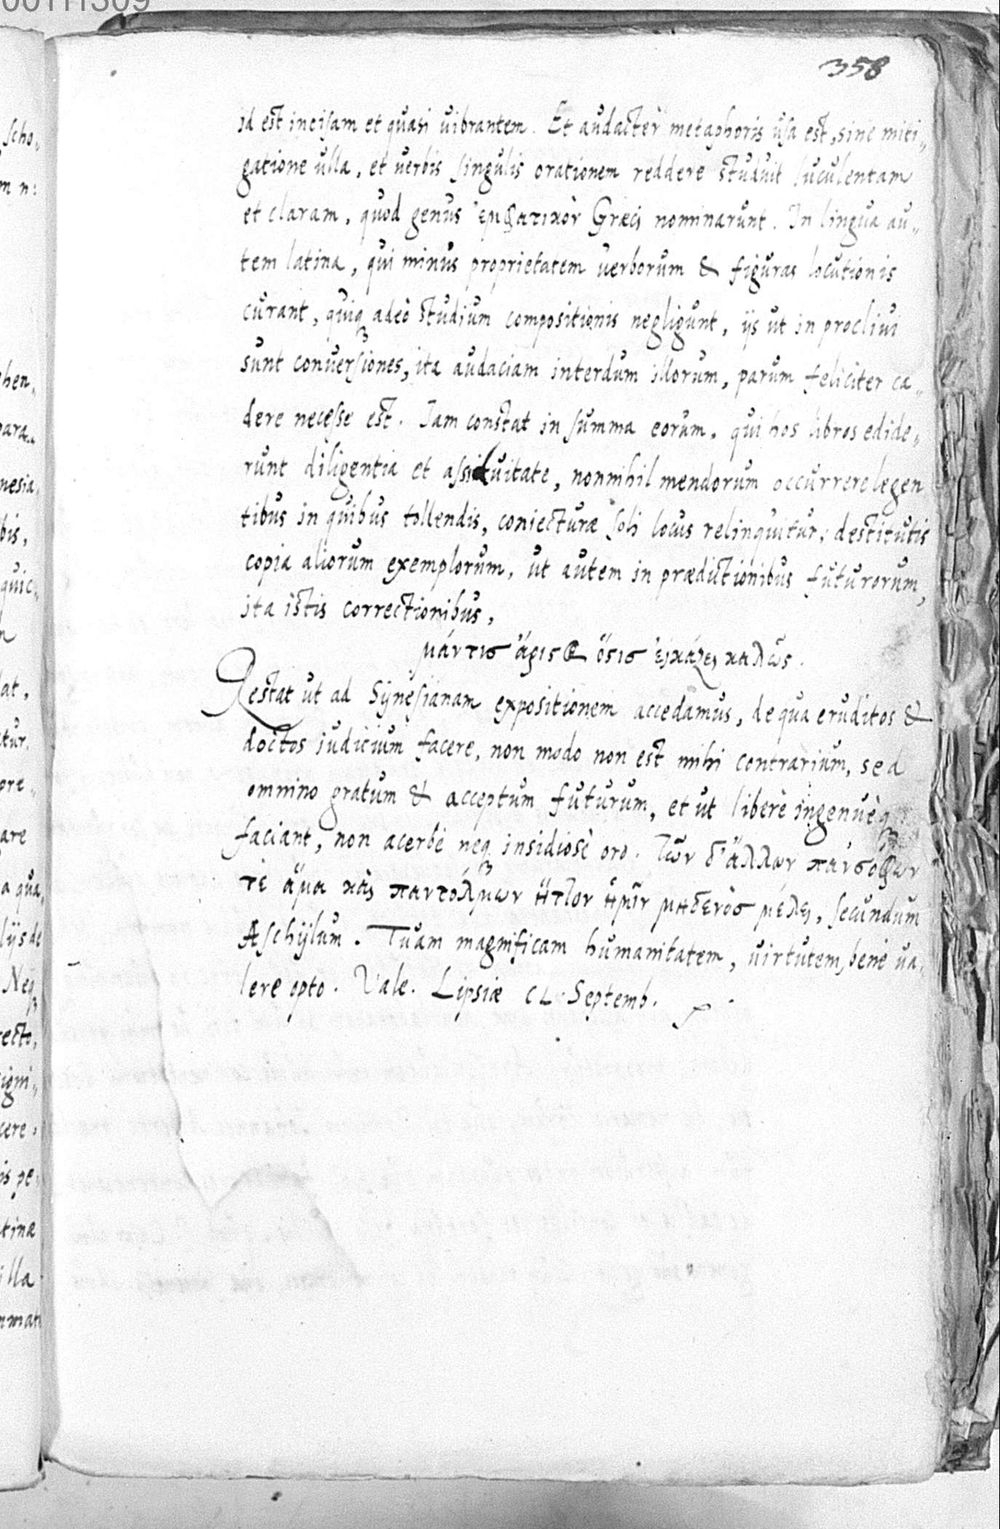 358
id est incisam et quasi vibrantem. Et audacter metaphoris usa est, sine miti,,
gatione ulla, et verbis singulis orationem reddere studuit luculentam
et claram, quod genus ἐμφατικὸν Græci nominarunt. In lingua au,,
tem latina, qui minus proprietatem verborum & figuras locutionis
curant, quiq adeò studium compositionis negligunt, ijs ut in proclivi
sunt conversiones, ita audaciam interdum illorum, parum feliciter ca,,
dere necesse est. Iam constat in summa eorum, qui hos libros edide,,
runt diligentia et assiduitate, nonnihil mendorum occurrere legen
tibus in quibus tollendis, coniecturæ soli locus relinquitur, destitutis
copia aliorum exemplorum, ut autem in prædictionibus futurorum,
ita istis correctionibus,
μάντις ἄριστος ὅσις εἰκάζει καλῶς.
Restat ut ad Synesianam expositionem accedamus, de qua eruditos &
doctos iudicium facere, non modo non est mihi contrarium, sed
omnino gratum & acceptum futurum, et ut liberè ingenuèq
faciant, non acerbè neq insidiosè oro. Τῶν δ'ἄλλων πανσόφων
τὲ ἅμα καὶ παντόλμων ἧττον ἡμῖν μηδενὸς μέλει, secundum
Æschylum. Tuam magnificam humanitatem, virtutem, benè va,,
lere opto. Vale. Lipsiæ CL. Septemb.